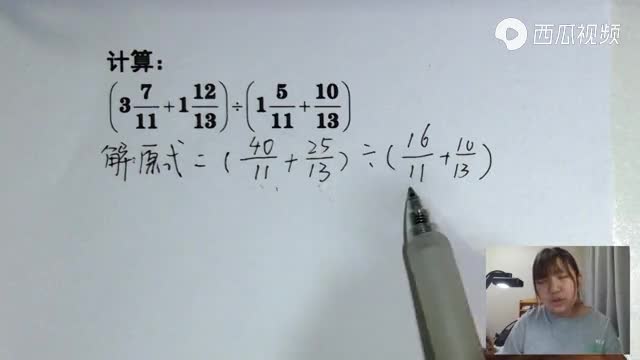 西瓜视频
计算：
(3 7/11 + 1 12/13) ÷ (1 5/11 + 10/13)
解:原式 = (40/11 + 25/13) ÷ (16/11 + 10/13)